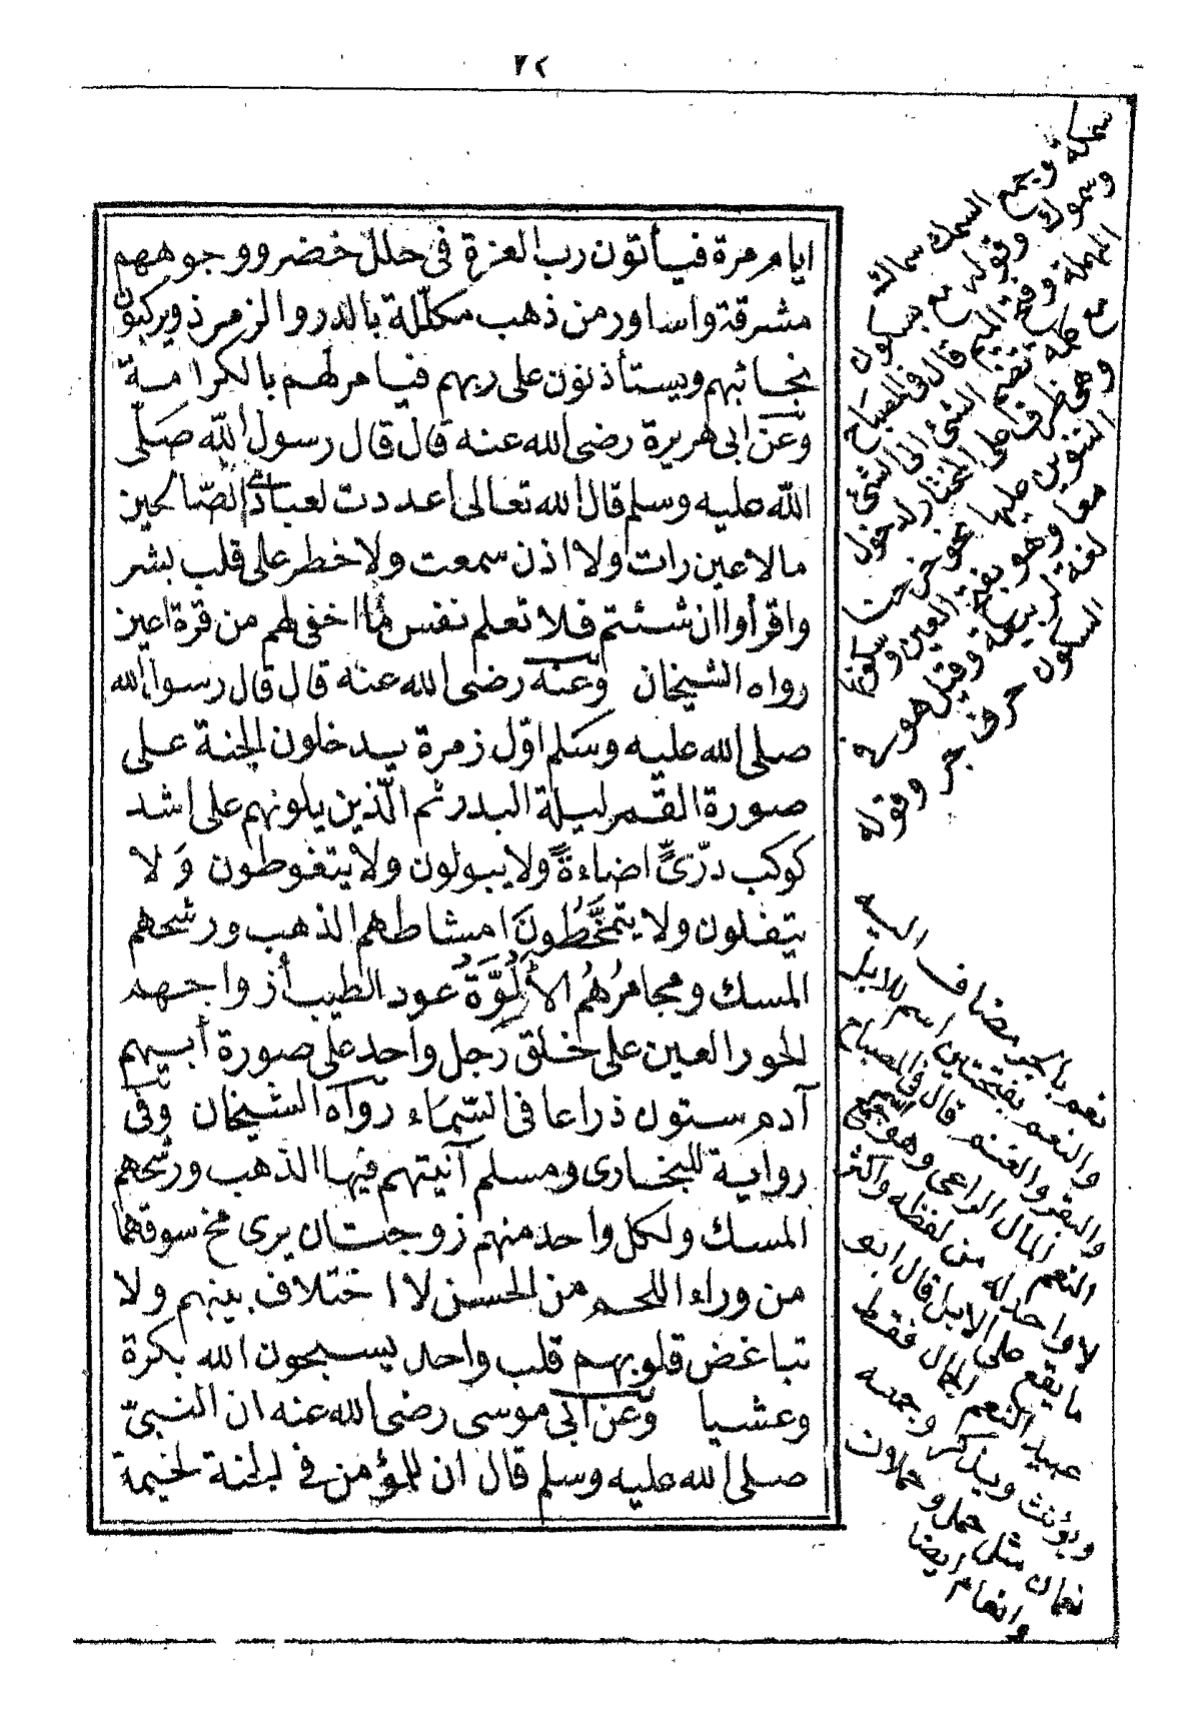 ٢٢
ايام مرة فيأتون رب العزة فى حلل خضر ووجوههم
مشرقة واساور من ذهب مكللة بالدر والزمرذ ويركبون
نجائبهم ويستأذنون على ربهم فيامر لهم بالكرامة
وعن ابى هريرة رضى الله عنه قال قال رسول الله صلّى
الله عليه وسلم قال الله تعالى اعددت لعبادى الصّالحين
مالا عين رات ولا اذن سمعت ولا خطر على قلب بشر
واقرأوا ان شئتم فلا تعلم نفس ما اخفى لهم من قرة اعين
رواه الشيخان وعنه رضى الله عنه قال قال رسول الله
صلى الله عليه وسلم اوّل زمرة يدخلون الجنة على
صورة القمر ليلة البدر ثم الّذين يلونهم على اشد
كوكب درّىّ اضاءةً ولا يبولون ولا يتغوطون وَلا
يتفلون ولا يتمَخَّطُونَ امشاطهم الذهب ورشحهم
المسك ومجامرُهُم الأَلُوَّةُ عود الطيب أزواجهم
الحور العين على خلق رجل واحد على صورة أبيهم
آدم ستون ذراعا فى السّمَاء رواه الشيخان وفى
رواية للبخارى ومسلم آنيتهم فيها الذهب ورشحهم
المسك ولكل واحد منهم زوجتان يرى مخ سوقهما
من وراء اللحم من الحسن لا اختلاف بينهم ولا
تباغض قلوبهم قلب واحد يسبحون الله بكرة
وعشيا وعن ابى موسى رضى الله عنه ان النبىّ
صلى الله عليه وسلم قال ان للمؤمن فى الجنة لخيمة
سمكة وجمع السمك سماك
وسموك وقوله مع بسكون
المهملة وفتح الميم قال فى المصباح
مع كلمة تضم الشئ الى الشئ
وهى ظرف على المختار لدخول
التنوين عليها نحو خرجنا
معا وهو بفتح العين وسكونها
لغة لربيعة وقيل هو مع
السكون حرف جر وقوله
نعم بالجر مضاف اليه
والنعم بفتحتين اسم للابل
والبقر والغنم قال فى المصباح
النعم المال الراعى وهو جمع
لا واحد له من لفظه واكثر
ما يقع على الابل قال ابو
عبيد النعم الجمال فقط
ويؤنث ويذكر وجمعه
نعمان مثل حمل وحملان
وانعام ايضا